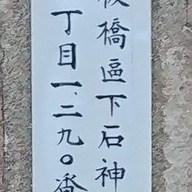 板橋區下石神
丁目一、二九〇番